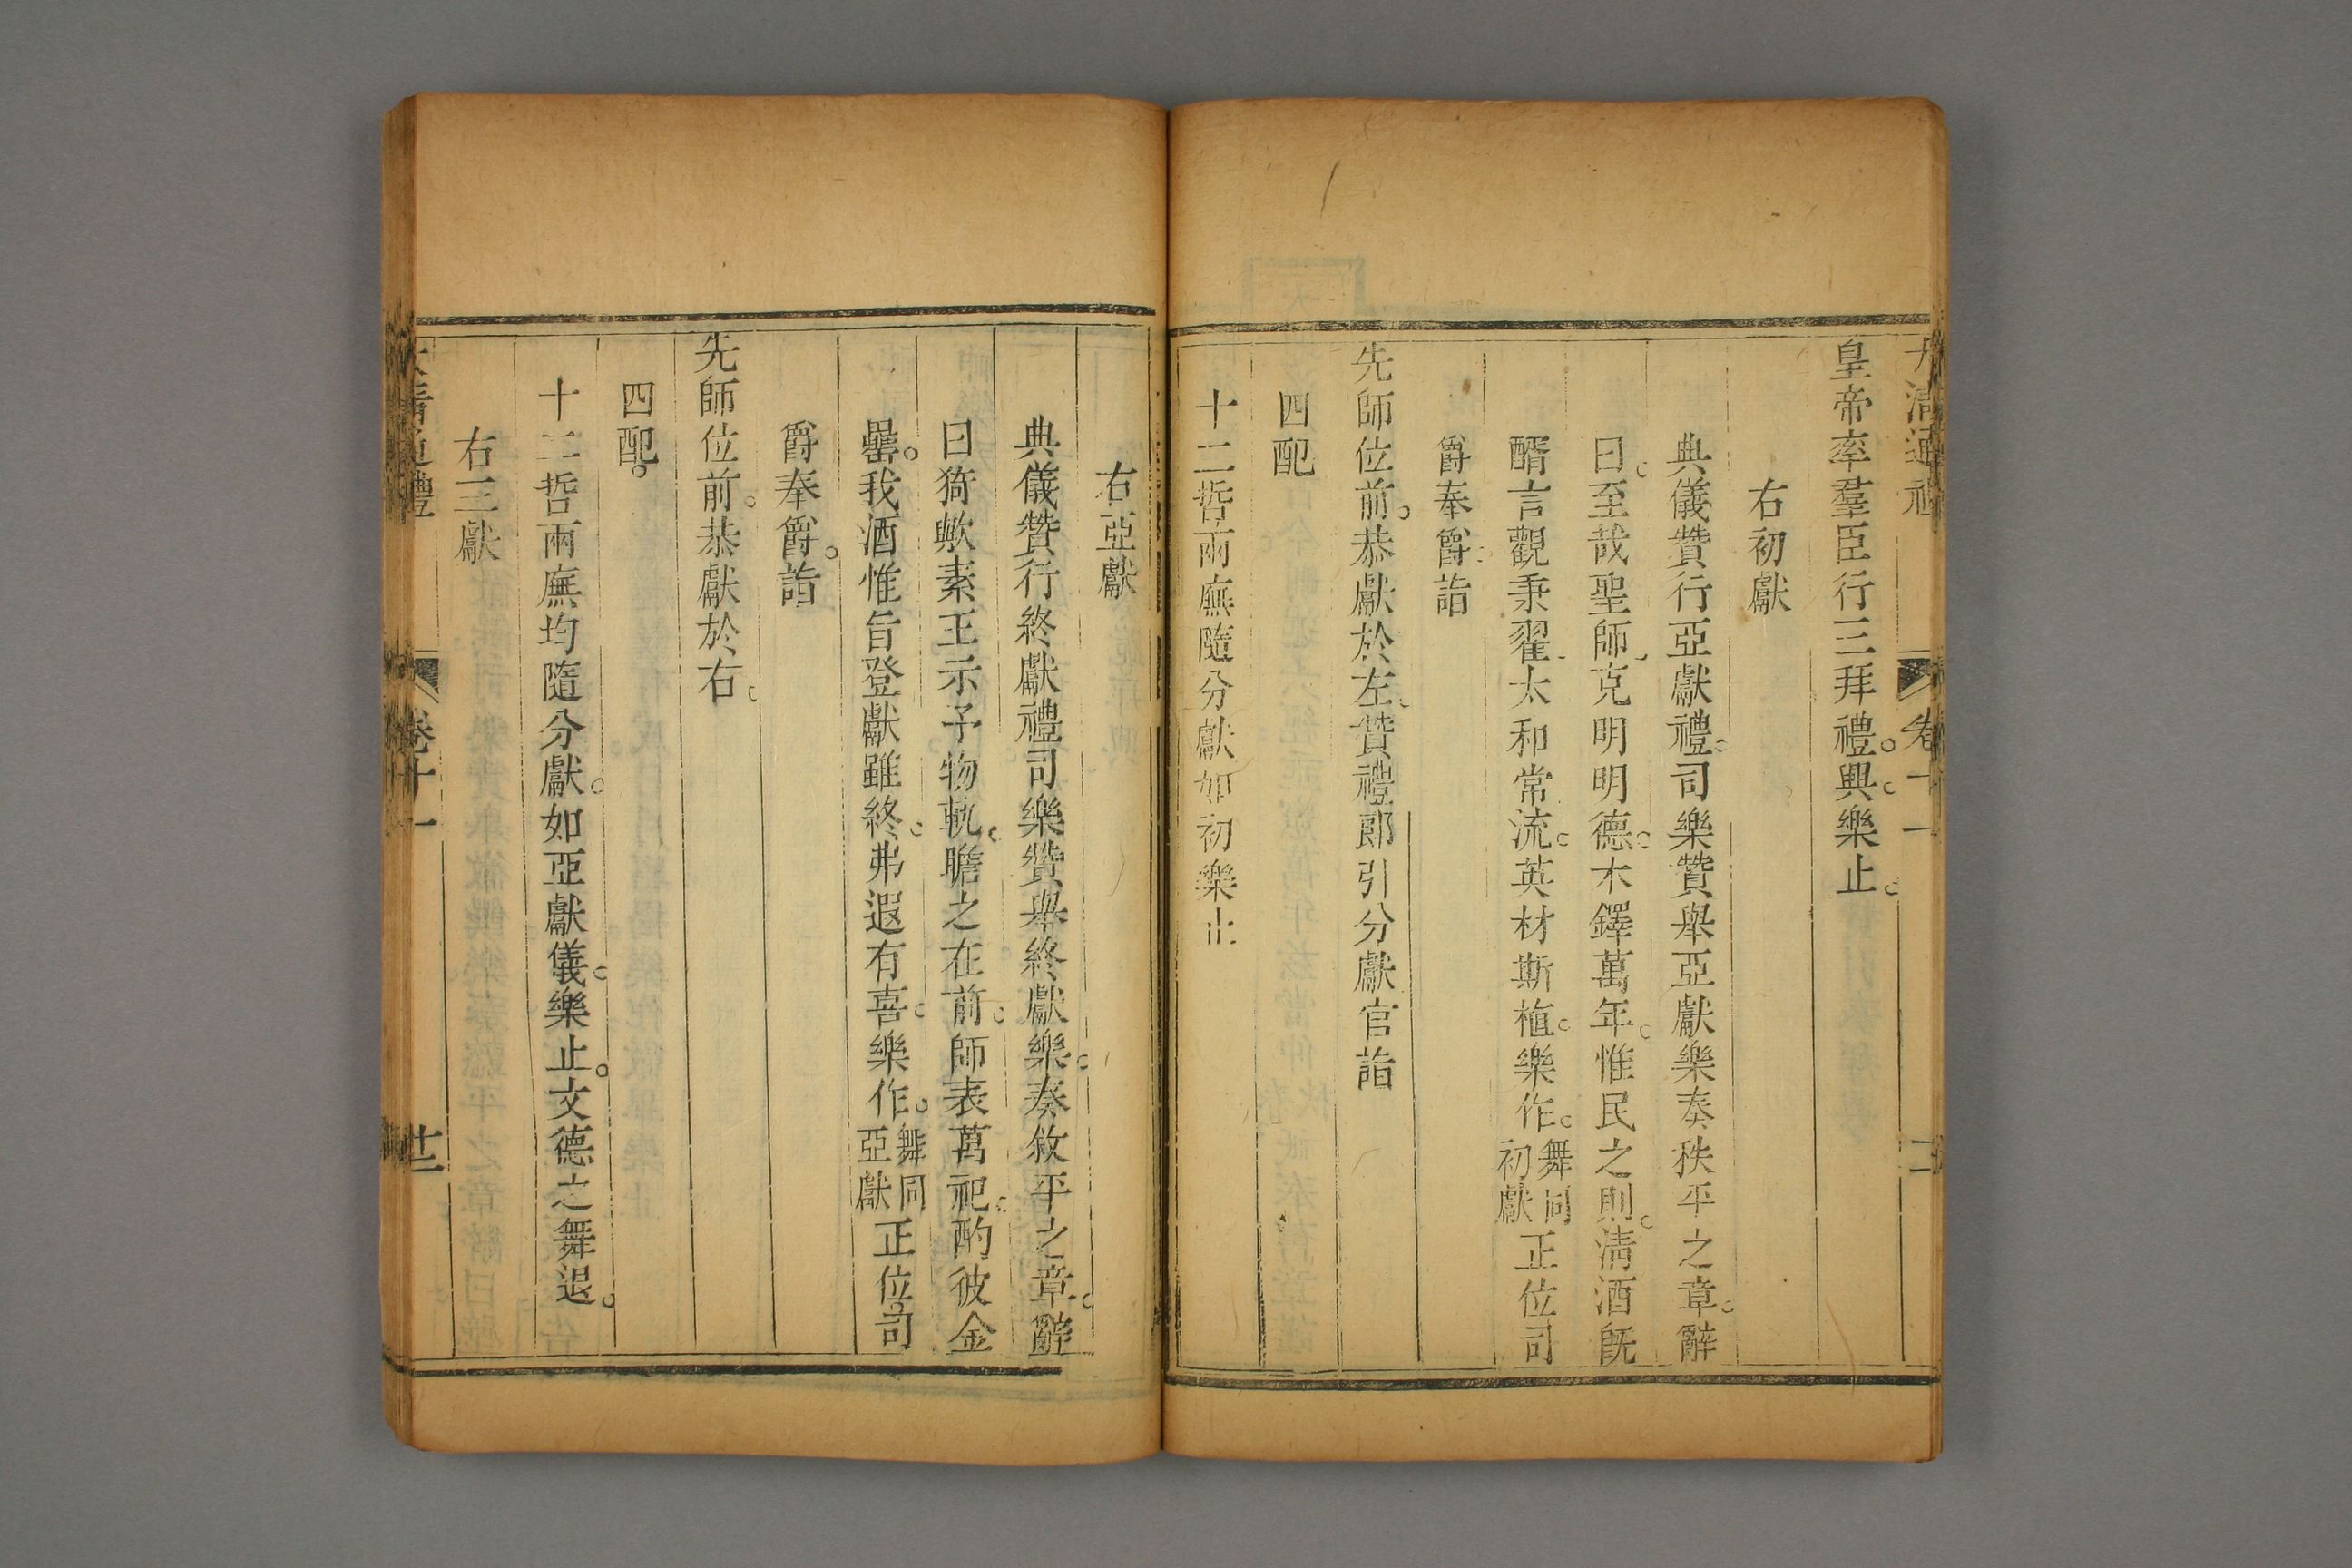 大清通禮 卷十一
皇帝率羣臣行三拜禮。興。樂止。
右初獻
典儀贊行亞獻禮。司樂贊舉亞獻樂奏秩平之章。辭
曰。至哉聖師。克明明德。木鐸萬年。惟民之則。淸酒旣
醑。言觀秉翟。太和常流。英材斯植。樂作。舞同初獻正位司
爵奉爵。詣
先師位前。恭獻於左。贊禮郎引分獻官詣
四配
十二哲兩廡隨分獻如初樂止
右亞獻
典儀贊行終獻禮司樂贊舉終獻樂。奏敘平之章。辭
曰猗歟素王示予物軌。瞻之在前。師表萬祀。酌彼金
罍。我酒惟旨登獻雖終。弗遐有喜。樂作。舞同亞獻正位司
爵奉爵。詣
先師位前。恭獻於右。
四配。
十二哲兩廡均隨分獻。如亞獻儀。樂止。文德之舞退。
右三獻
大清通禮 卷十一